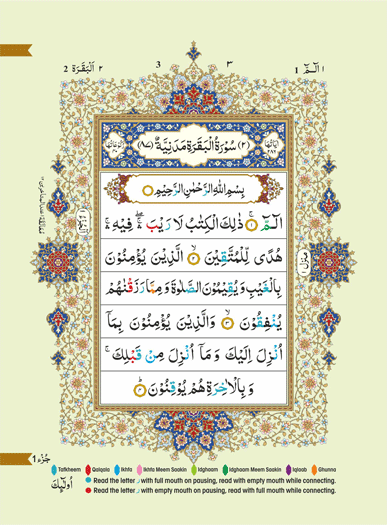 ٢ اَلْبَقَرَة 2
3
٣
1 الٓمّٓ ١
(٢) سُوْرَةُ الْبَقَرَةِ مَدَنِيَّةٌ (٨٧)
بِسْمِ اللّٰهِ الرَّحْمٰنِ الرَّحِيْمِ
الٓمّٓ ۚ ١ ذٰلِكَ الْكِتٰبُ لَا رَيْبَ ۛۖ فِيْهِ ۛۚ
هُدًى لِّلْمُتَّقِيْنَ ۙ ٢ الَّذِيْنَ يُؤْمِنُوْنَ
بِالْغَيْبِ وَيُقِيْمُوْنَ الصَّلٰوةَ وَمِمَّا رَزَقْنٰهُمْ
يُنْفِقُوْنَ ۙ ٣ وَالَّذِيْنَ يُؤْمِنُوْنَ بِمَاۤ
اُنْزِلَ اِلَيْكَ وَمَاۤ اُنْزِلَ مِنْ قَبْلِكَ ۚ
وَبِالْاٰخِرَةِ هُمْ يُوْقِنُوْنَ ؕ ٤
جُزْء 1
Tafkheem Qalqala Ikhfa Ikhfa Meem Saakin Idghaam Idghaam Meem Saakin Iqlaab Ghunna
Read the letter ر with full mouth on pausing, read with empty mouth while connecting.
Read the letter ر with empty mouth on pausing, read with full mouth while connecting.
اُولٰٓئِكَ